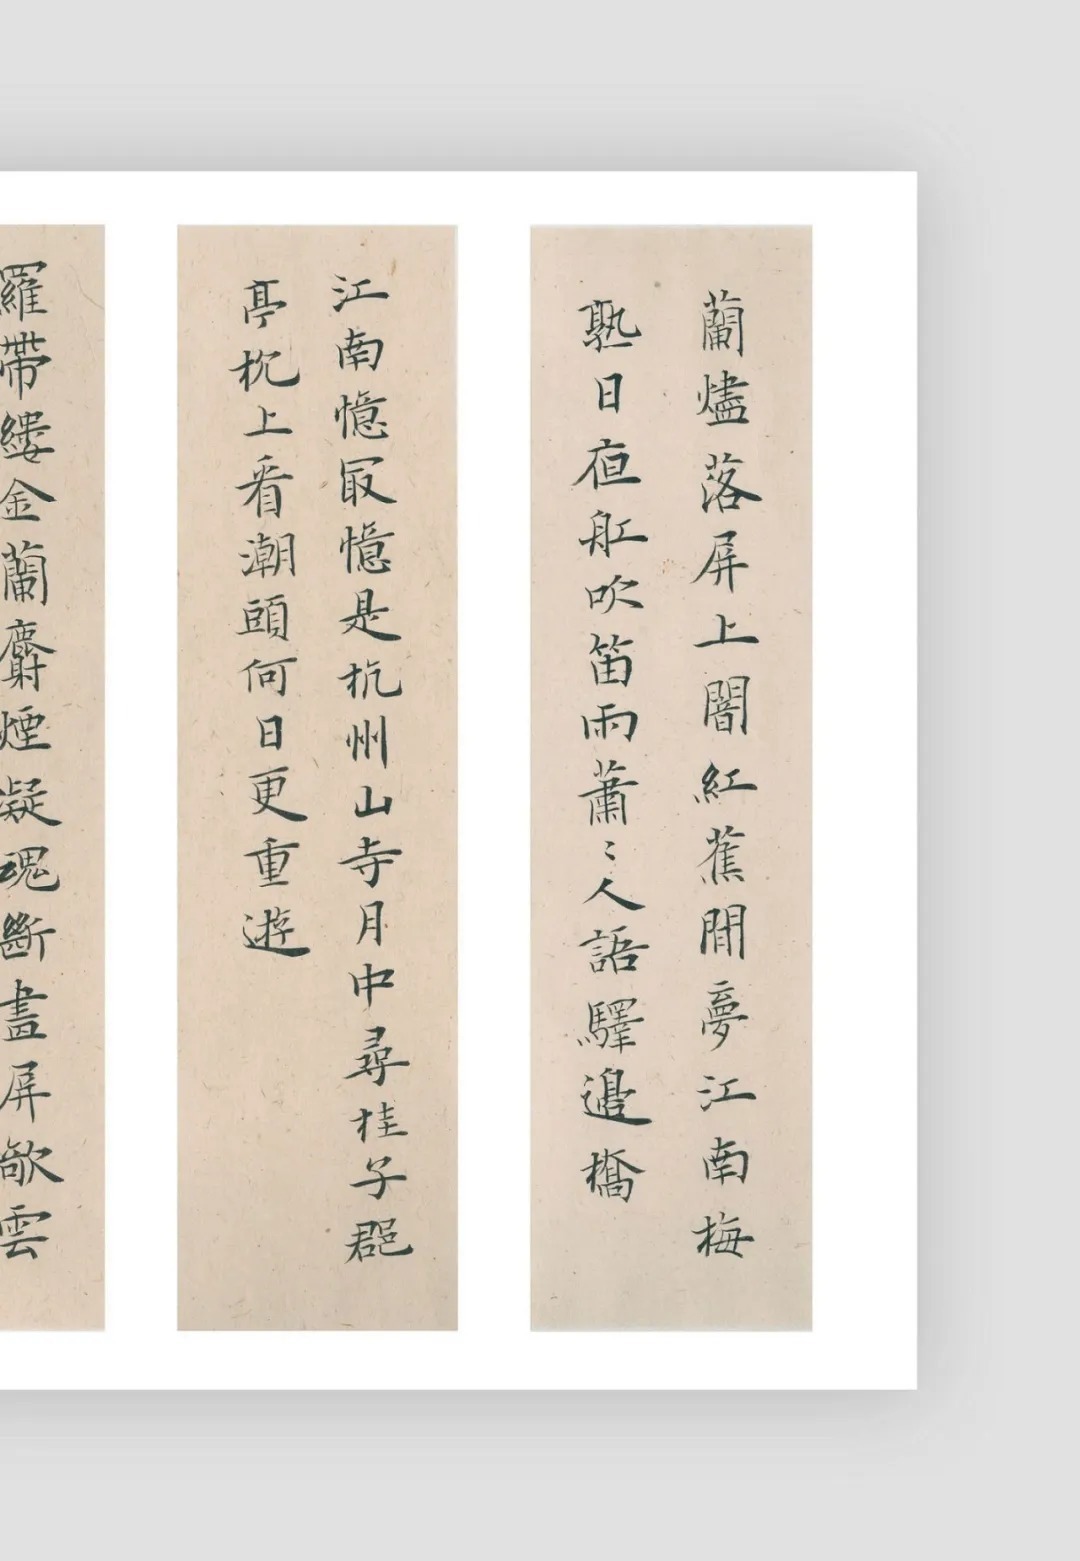 蘭燼落屏上闇紅蕉閒夢江南梅
熟日夜舩吹笛雨蕭〻人語驛邊橋
江南憶冣憶是杭州山寺月中尋桂子郡
亭枕上看潮頭何日更重遊
羅帶縷金蘭麝煙凝魂斷畫屏欹雲